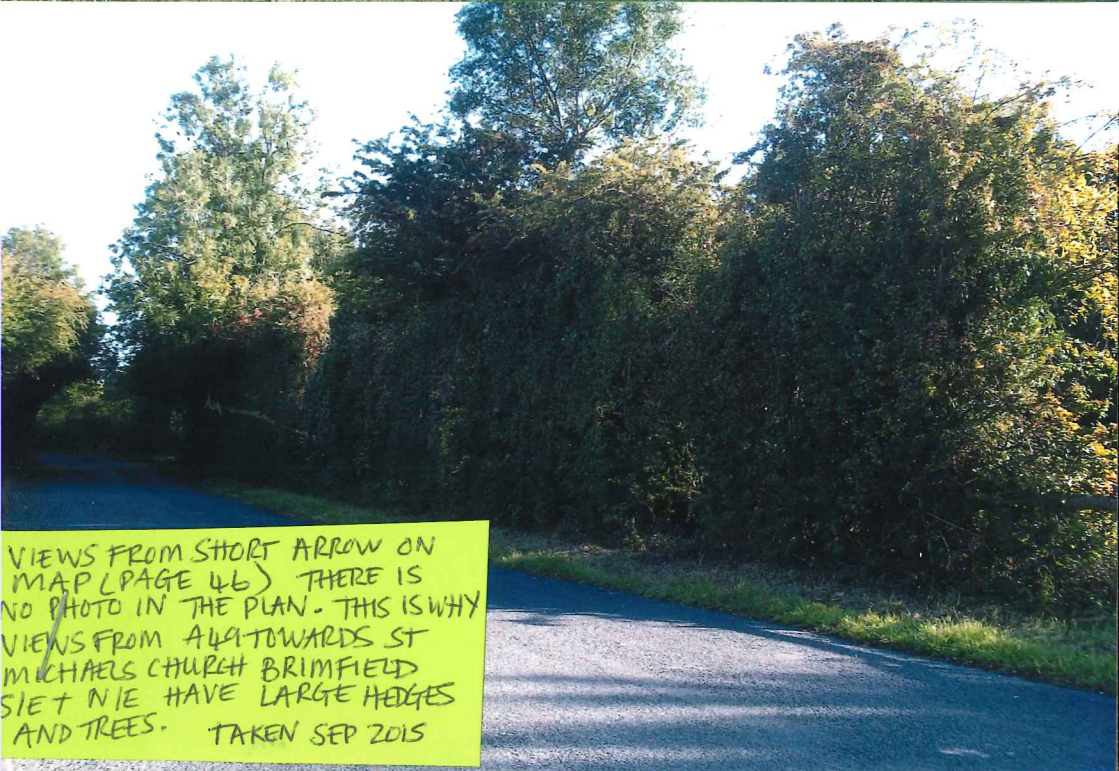 VIEWS FROM SHORT ARROW ON
MAP (PAGE 46) THERE IS
NO PHOTO IN THE PLAN. THIS IS WHY
VIEWS FROM A49 TOWARDS ST
MICHAELS CHURCH BRIMFIELD
S/E + N/E HAVE LARGE HEDGES
AND TREES. TAKEN SEP 2015